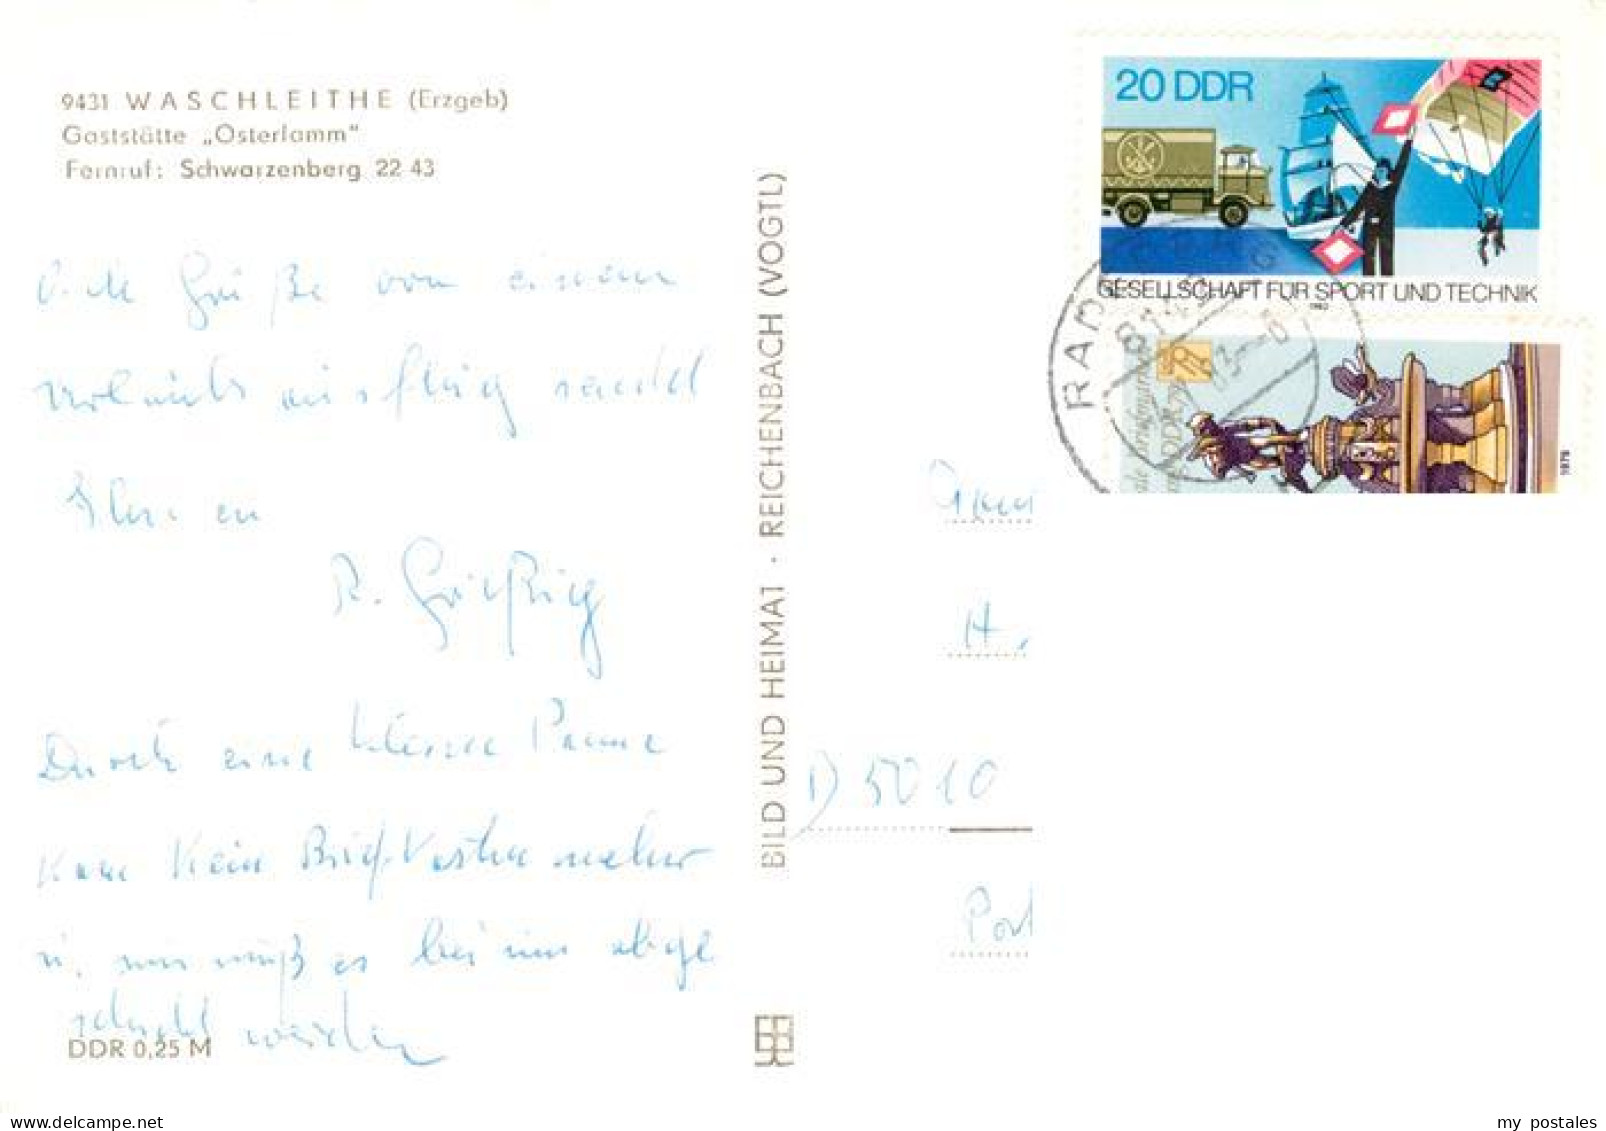 9431 WASCHLEITHE (Erzgeb)
Gaststätte „Osterlamm"
Fernruf: Schwarzenberg 22 43
Viele Grüße von einem
Urlaubsausflug sendet
Ihnen
R.
Durch eine kleine Panne
kam kein Briefkasten mehr
u. nun muß es bei uns abge
schickt werden
DDR 0,25 M
BILD UND HEIMAT · REICHENBACH (VOGTL)
20 DDR
GESELLSCHAFT FÜR SPORT UND TECHNIK
1982
RAD
8142
1979
H.
D 5010
Post
delcampe.net
my postales